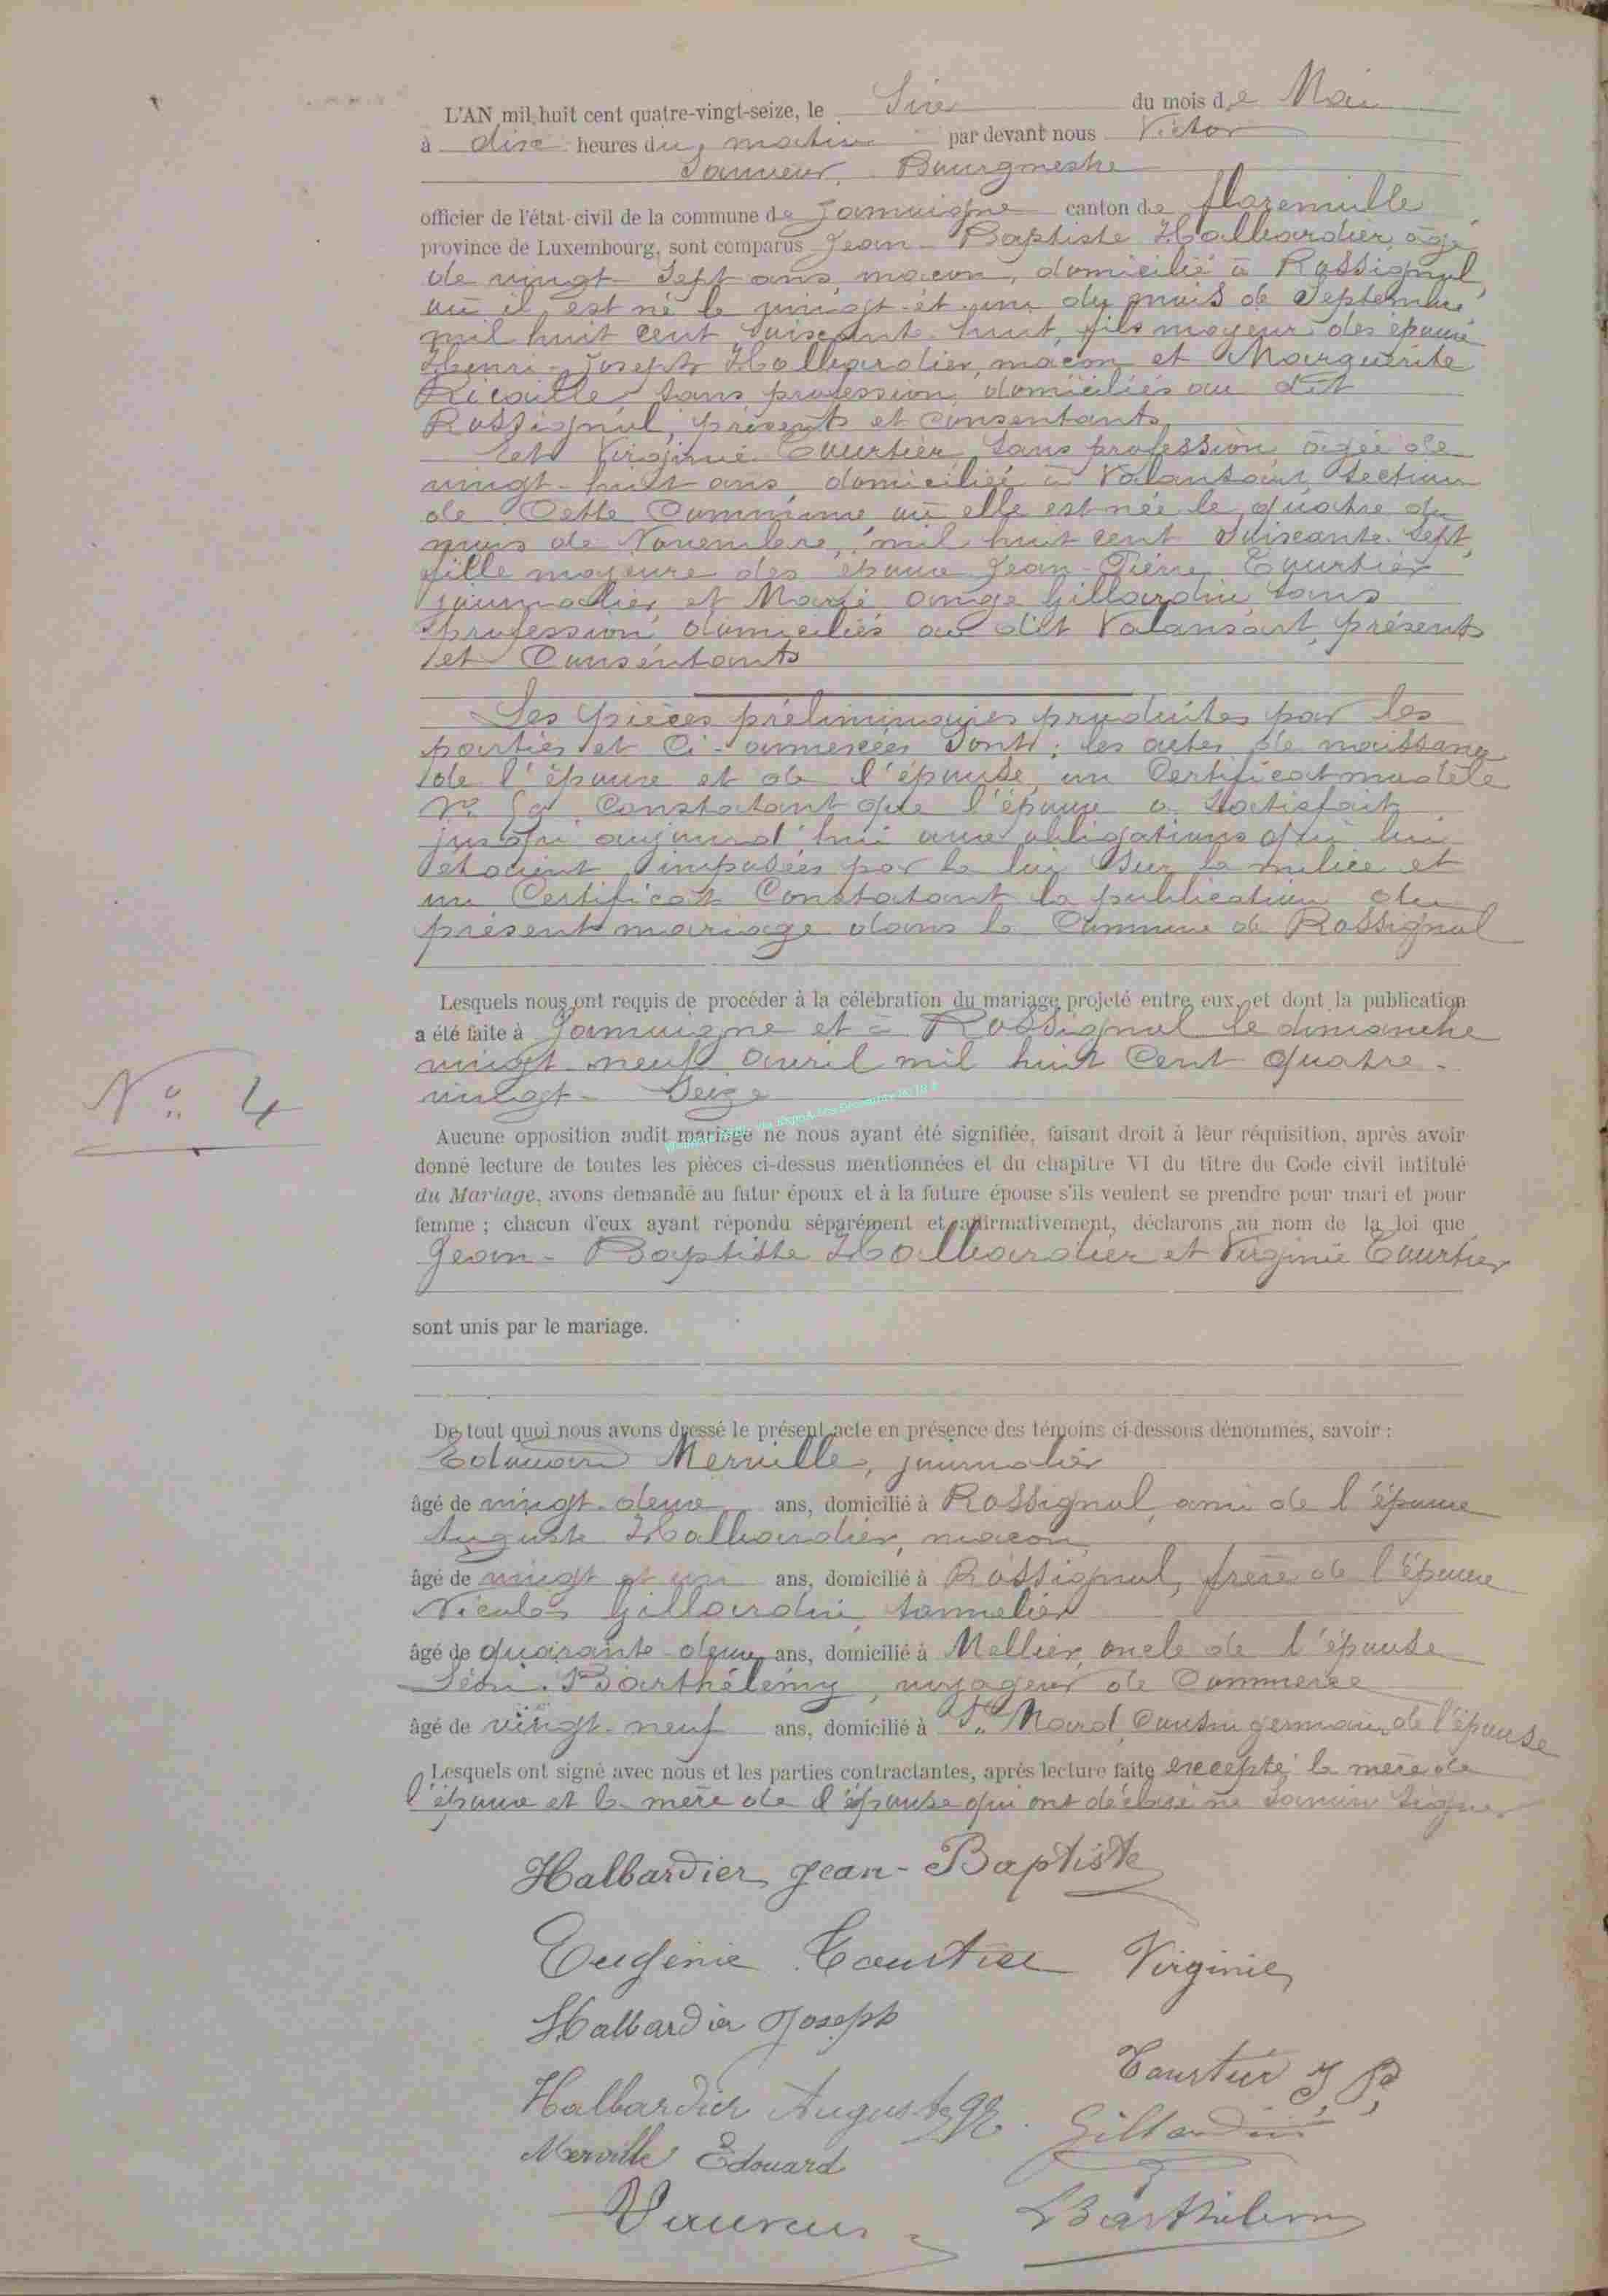 L'AN mil huit cent quatre-vingt-seize, le Six du mois de Mai
à dix heures du matin par devant nous Victor
Sauveur, Bourgmestre
officier de l'état-civil de la commune de Jamoigne canton de florenville
province de Luxembourg, sont comparus Jean-Baptiste Halbardier, âgé
de vingt-Sept ans, maçon, domicilié à Rossignol,
où il est né le vingt-et-un du mois de Septembre
mil huit cent soixante-huit, fils majeur des époux
Henri-Joseph Halbardier, maçon et Marguerite
Ricaille, sans profession, domiciliés au dit
Rossignol, présents et consentants
Et Virginie Courtier, sans profession âgée de
vingt-huit ans, domiciliée à Valansart, section
de Cette Commune où elle est née le quatre du
mois de Novembre, mil huit cent soixante-sept,
fille majeure des époux Jean-Pierre Courtier
journalier et Marie ange Gillardin, sans
profession, domiciliés au dit Valansart, présents
et Consentants
Les pièces préliminaires produites par les
parties et Ci-annexées sont: les actes de naissance
de l'époux et de l'épouse, un Certificat modèle
Nº constatant que l'époux a satisfait
jusqu'aujourd'hui aux obligations qui lui
étaient imposées par la loi sur la milice et
un Certificat Constatant la publication du
présent mariage dans la Commune de Rossignol
Lesquels nous ont requis de procéder à la célébration du mariage projeté entre eux, et dont la publication
a été faite à Jamoigne et à Rossignol le dimanche
vingt-neuf avril mil huit Cent quatre-
vingt-Seize
Nº 4
Aucune opposition audit mariage ne nous ayant été signifiée, faisant droit à leur réquisition, après avoir
donné lecture de toutes les pièces ci-dessus mentionnées et du chapitre VI du titre du Code civil intitulé
du Mariage, avons demandé au futur époux et à la future épouse s'ils veulent se prendre pour mari et pour
femme ; chacun d'eux ayant répondu séparément et affirmativement, déclarons au nom de la loi que
Jean-Baptiste Halbardier et Virginie Courtier
sont unis par le mariage.
De tout quoi nous avons dressé le présent acte en présence des témoins ci-dessous dénommés, savoir :
Edouard Merville, journalier
âgé de vingt-deux ans, domicilié à Rossignol, ami de l'époux
Auguste Halbardier, maçon
âgé de vingt et un ans, domicilié à Rossignol, frère de l'époux
Nicolas Gillardin, tonnelier
âgé de quarante-deux ans, domicilié à Mellier, oncle de l'épouse
Léon Barthélemy, voyageur de Commerce
âgé de vingt-neuf ans, domicilié à St Mard, Cousin germain de l'épouse
Lesquels ont signé avec nous et les parties contractantes, après lecture faite excepté la mère de
l'époux et la mère de l'épouse qui ont déclaré ne savoir signer
Halbardier Jean-Baptiste
Eugénie Courtier Virginie
Halbardier Joseph
Courtier J P,
Halbardier Auguste
Gillardin
Merville Edouard
Sauveur
LBarthélemy